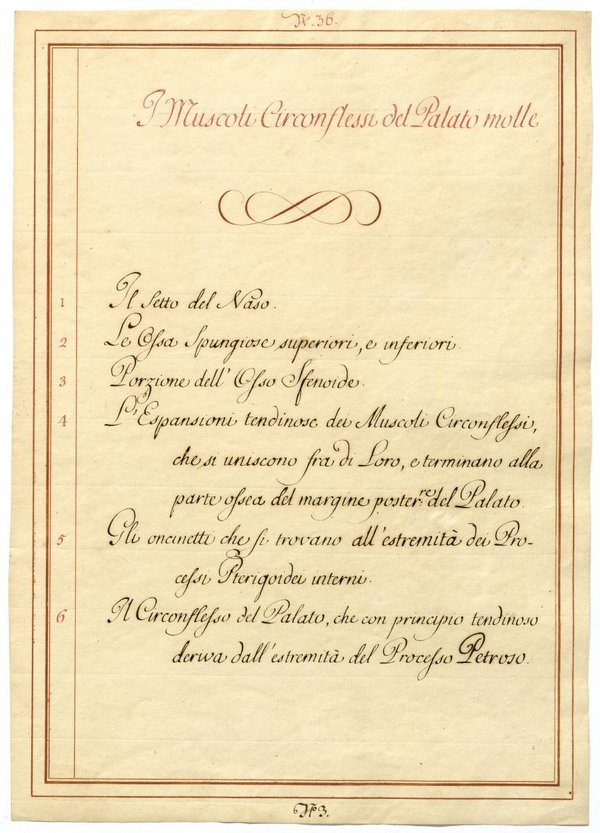 N.º 36.
I Muscoli Circonflessi del Palato molle
1 Il Setto del Naso.
2 Le Ossa Spungiose superiori, e inferiori.
3 Porzione dell' Osso Sfenoide.
4 L'Espansioni tendinose dei Muscoli Circonflessi,
che si uniscono fra di Loro, e terminano alla
parte ossea del margine poster.re del Palato.
5 Gli oncinetti che si trovano all'estremità dei Pro-
cessi Pterigoidei interni.
6 Il Circonflesso del Palato, che con principio tendinoso
deriva dall'estremità del Processo Petroso.
Nº 3.